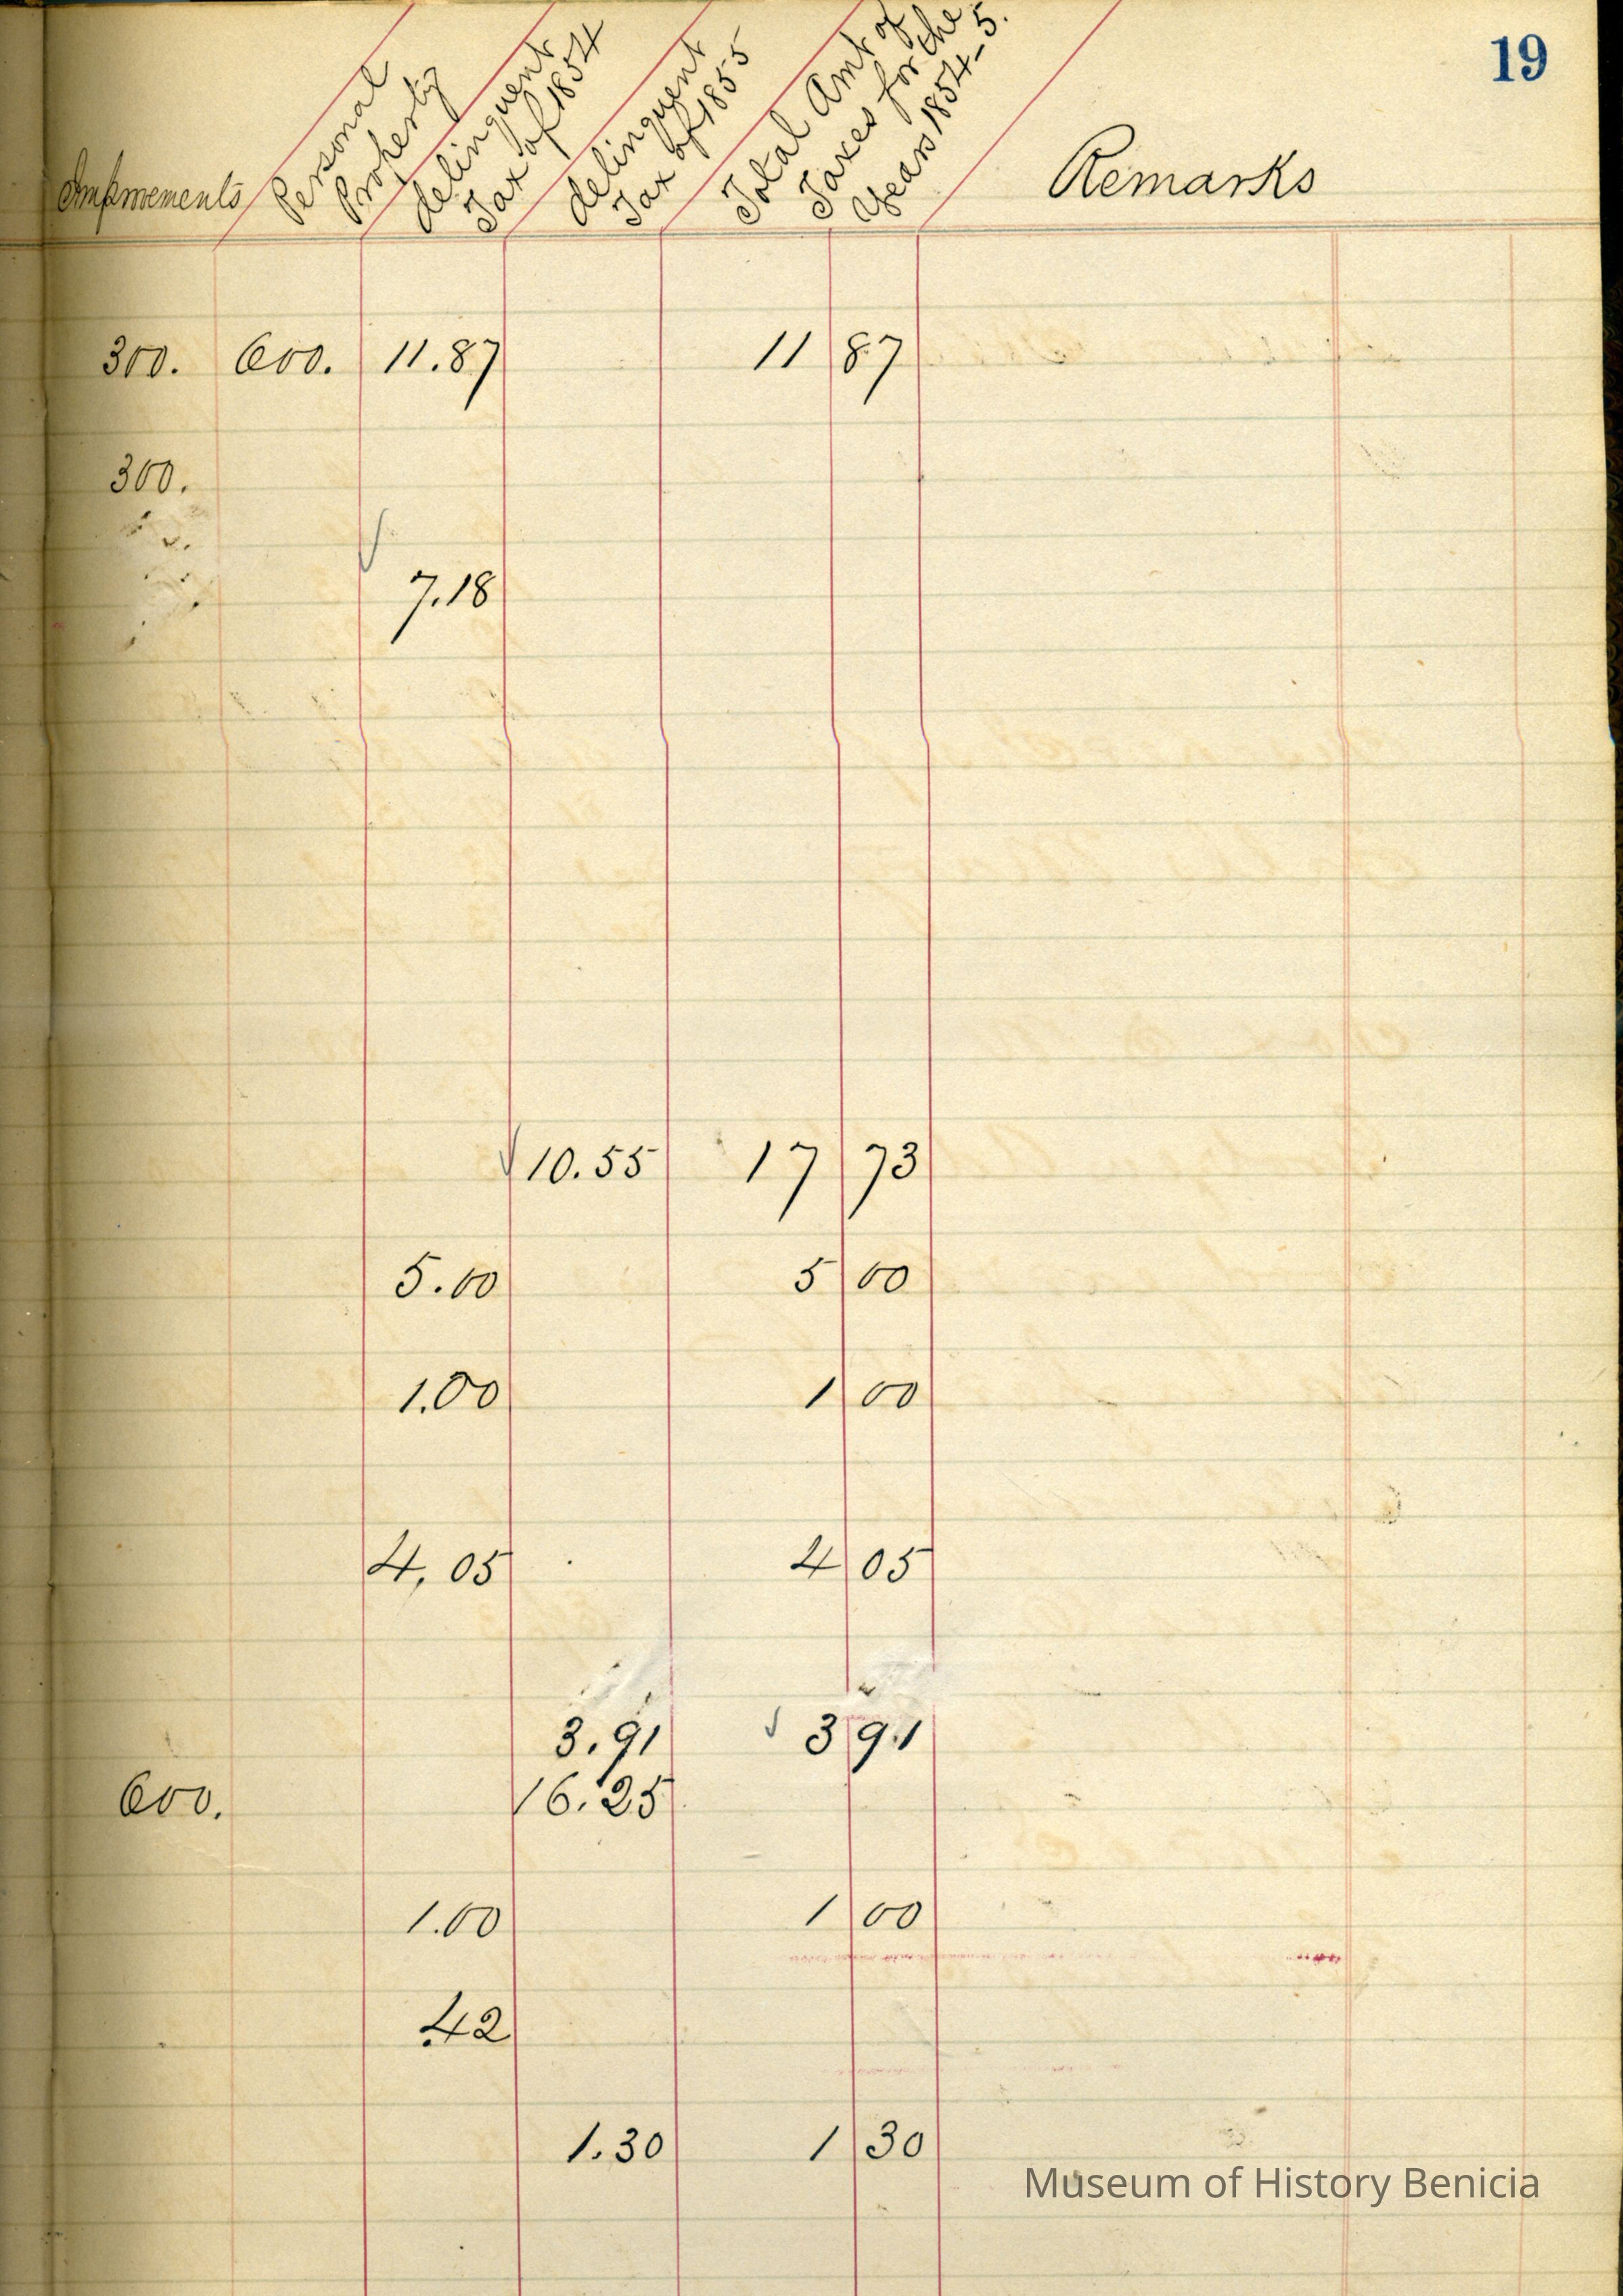 19
Impromements
Personal Property
delinquent Tax of 1854
delinquent Tax of 1855
Total Amt of Taxes for the Years 1854-5.
Remarks
300. 600. 11.87 11 87
300.
7.18
√10.55 17 73
5.00 5 00
1.00 1 00
4,05 4 05
3.91 √ 3 91
600. 16.25
1.00 1 00
.42
1.30 1 30
Museum of History Benicia